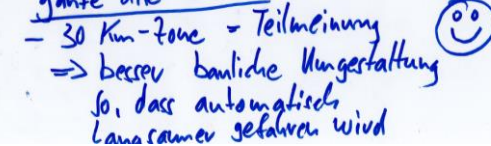 - 30 Km-Zone = Teilmeinung
=> besser bauliche Umgestaltung
so, dass automatisch
langsamer gefahren wird